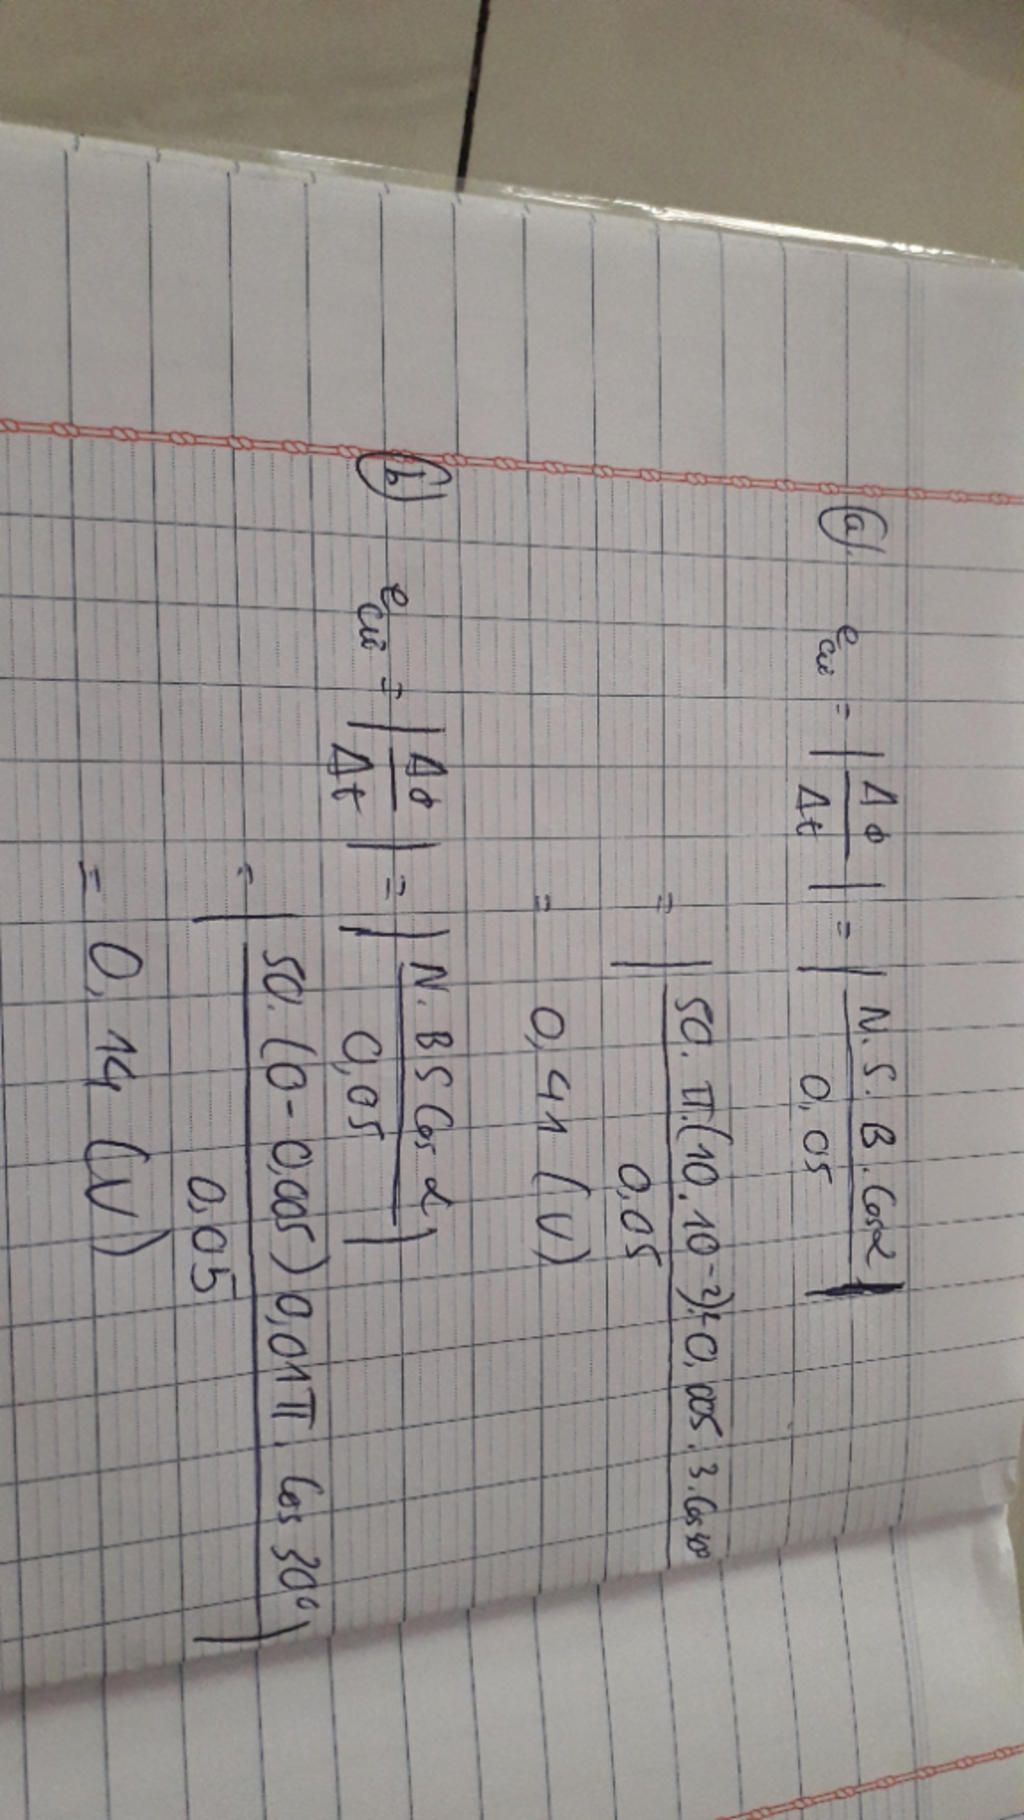 a) e_cư = |Δϕ/Δt| = |N.S.B.cosα/0,05|
= |50.π.(10.10⁻²)².0,005.3.cos30°/0,05|
= 0,41 (V)
b) e_cư = |Δϕ/Δt| = |N.BS cosα/0,05|
= |50.(0-0,005)0,01π.cos30°/0,05|
= 0,14 (V)